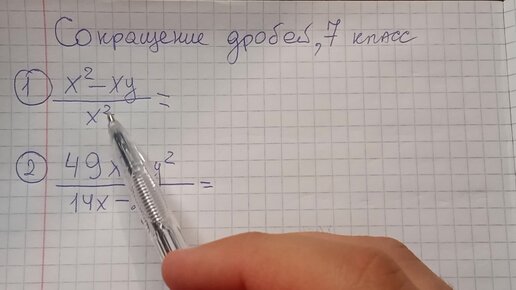 Сокращение дробей, 7 класс
① x² - xy
x² =
② 49x y²
14x - =